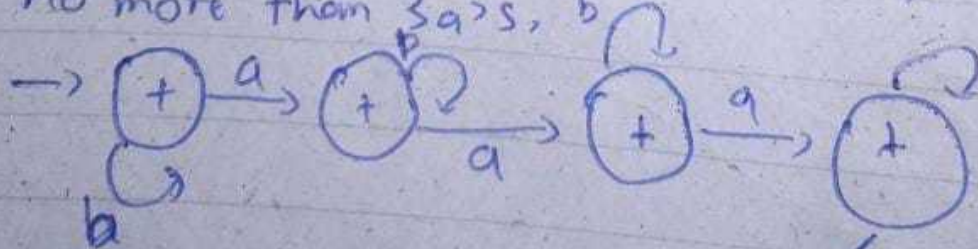 no more than 3a's, b
b
→ + a + a + a +
b